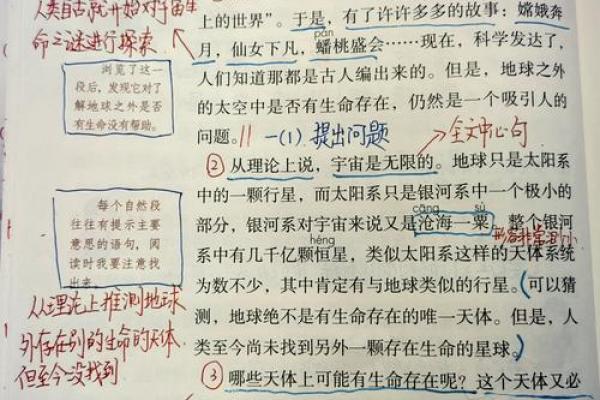 人类自古就开始对宇宙生
命之谜进行探索
浏览了这一
段后，发现它对了
解地球之外是否
有生命没有帮助。
每个自然段
往往有提示主要
意思的语句，阅
读时我要注意找
出来。
从理论上推测地球
外存在别的生命的天体
但至今没找到
上的世界”。于是，有了许许多多的故事：嫦娥奔
pán
月，仙女下凡，蟠桃盛会……现在，科学发达了，
人们知道那都是古人编出来的。但是，地球之外
的太空中是否有生命存在，仍然是一个吸引人的
问题。∥一(1) 提出问题
全文中心句
②从理论上说，宇宙是无限的。地球只是太阳系
中的一颗行星，而太阳系只是银河系中一个极小的
cāng sù
部分，银河系对宇宙来说又是沧海一粟。整个银河
形容非常渺小
héng
系中有几千亿颗恒星，类似太阳系这样的天体系统
为数不少，其中肯定有与地球类似的行星。(可以猜
测，地球绝不是有生命存在的唯一天体。但是，人
类至今尚未找到另外一颗存在生命的星球。)
③哪些天体上可能有生命存在呢？这个天体又必